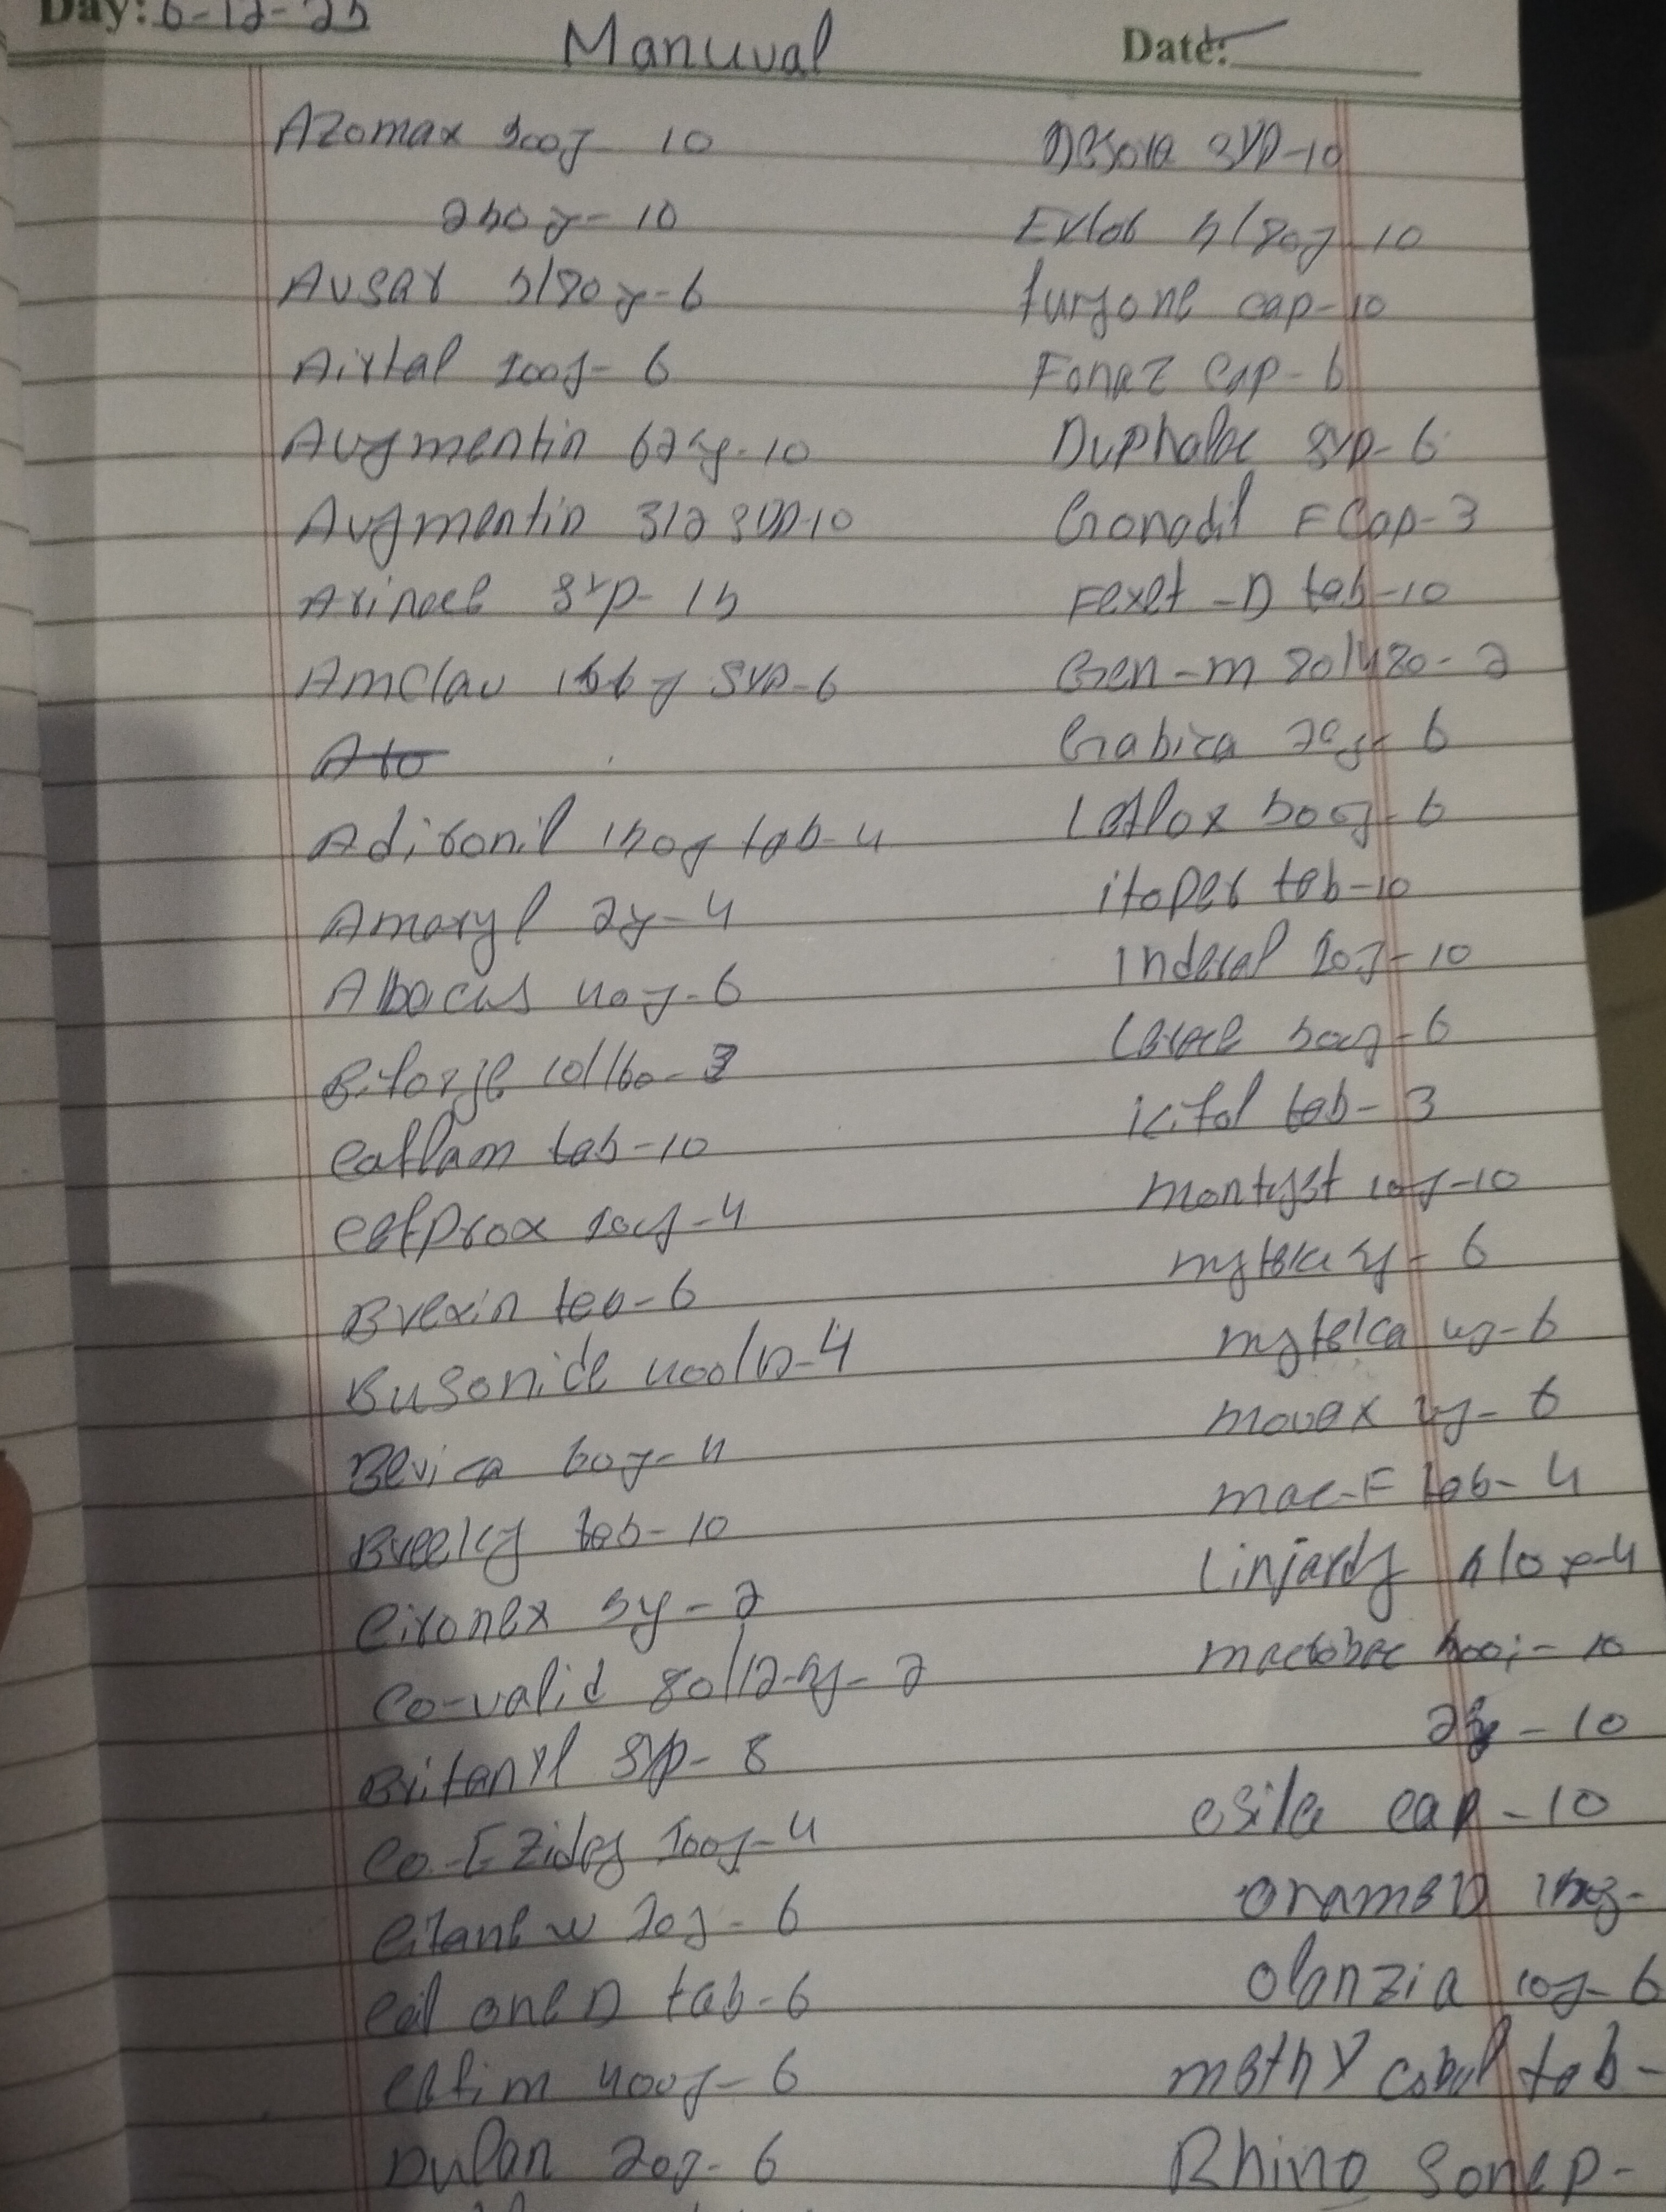 Day: 6-12-25
Manuval
Date:
Azomax 500g - 10
250g - 10
Avsar 5/80g - 6
Airtal 100g - 6
Augmentin 625g - 10
Augmentin 312 syp-10
Arinac syp - 15
Amclav 156g syp-6
Ato
Adironil 150g tab-4
Amaryl 2g-4
Abocus 40g-6
Biforge 10/160-3
Caflam tab-10
Cefprox 100g-4
Brexin tab-6
Busonide 400/12-4
Bevica 60g-4
Breeky tab-10
Cironex 5g-2
Co-valid 80/12.5g-2
Britanyl syp-8
Co-Eziday 100g-4
Citanew 20g-6
Cal one D tab-6
Cefim 400g-6
Dulan 20g-6
Desora syp-10
Exfob 5/80g-10
furgone cap-10
Fonaz cap-6
Duphalac syp-6
Gonadil F Cap-3
Fexet -D tab-10
Gen-m 80/480-2
Gabica 75g-6
Leflox 500g-6
itoper tab-10
Inderal 10g-10
500g-6
icifol tab-3
montyst 10g-10
mytelca 5g-6
mytelca 4g-6
movax 2g-6
mac-F tab-4
Linjardy 5/10g-4
mectobac 500g-10
25g-10
esila cap-10
oramed 150g-
olanzia 10g-6
methy cobal tab-
Rhino sone p-